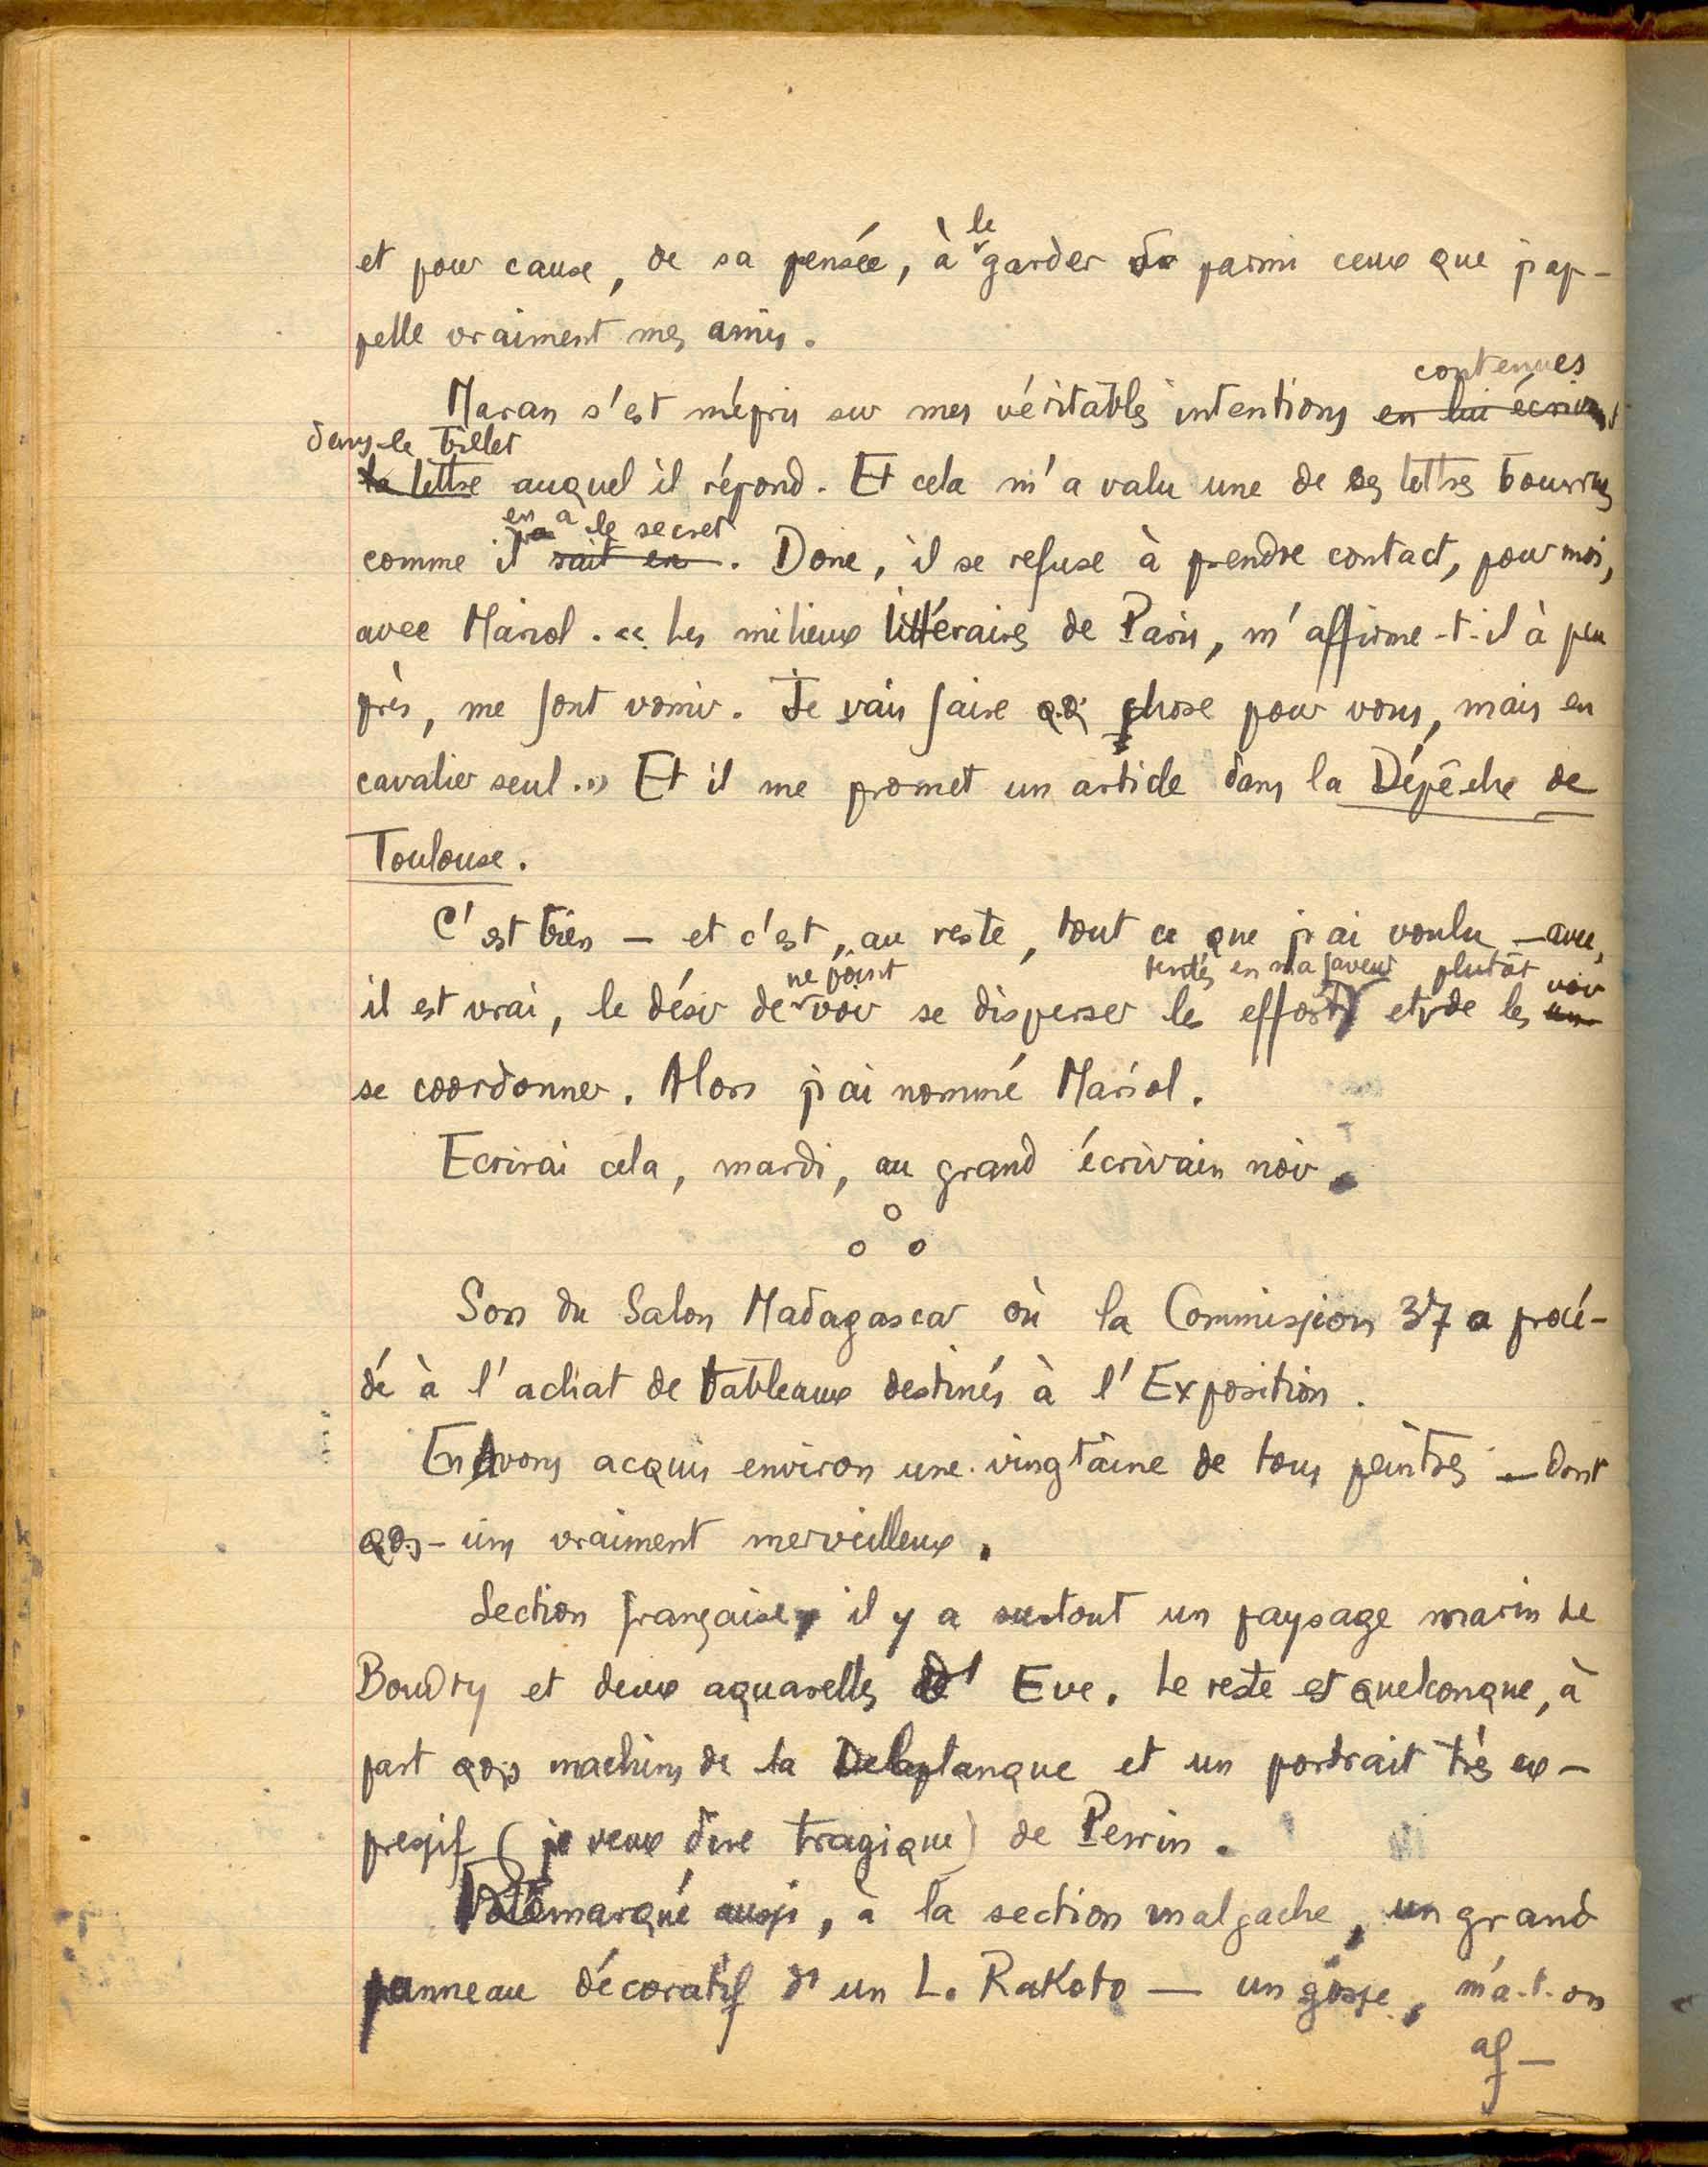 et pour cause, de sa pensée, à le garder parmi ceux que j'ap-
pelle vraiment mes amis.
Maran s'est mépris sur mes véritables intentions en lui écrivant contenues
dans le billet
la lettre auquel il répond. Et cela m'a valu une de ses lettres bourrues
en a le secret
comme il sait en. Donc, il se refuse à prendre contact, pour moi,
avec Mariol. « Les milieux littéraires de Paris, m'affirme-t-il à peu
près, me font vomir. Je vais faire qq chose pour vous, mais en
cavalier seul. » Et il me promet un article dans la Dépêche de
Toulouse.
C'est bien — et c'est, au reste, tout ce que j'ai voulu — avec,
ne point tentés en ma faveur plutôt voir
il est vrai, le désir de voir se disperser les efforts et de les
se coordonner. Alors j'ai nommé Mariol.
Ecrirai cela, mardi, au grand écrivain noir.
Sors du Salon Madagascar où la Commission 37 a procé-
dé à l'achat de tableaux destinés à l'Exposition.
En avons acquis environ une vingtaine de tous peintres — dont
qqs-uns vraiment merveilleux.
Section française, il y a surtout un paysage marin de
Boudry et deux aquarelles d'Eve. Le reste est quelconque, à
part qqs machins de la Delaplanque et un portrait très ex-
pressif (je veux dire tragique) de Perrin.
Remarqué aussi, à la section malgache, un grand
panneau décoratif d'un L. Rakoto — un gosse, m'a-t-on
af-